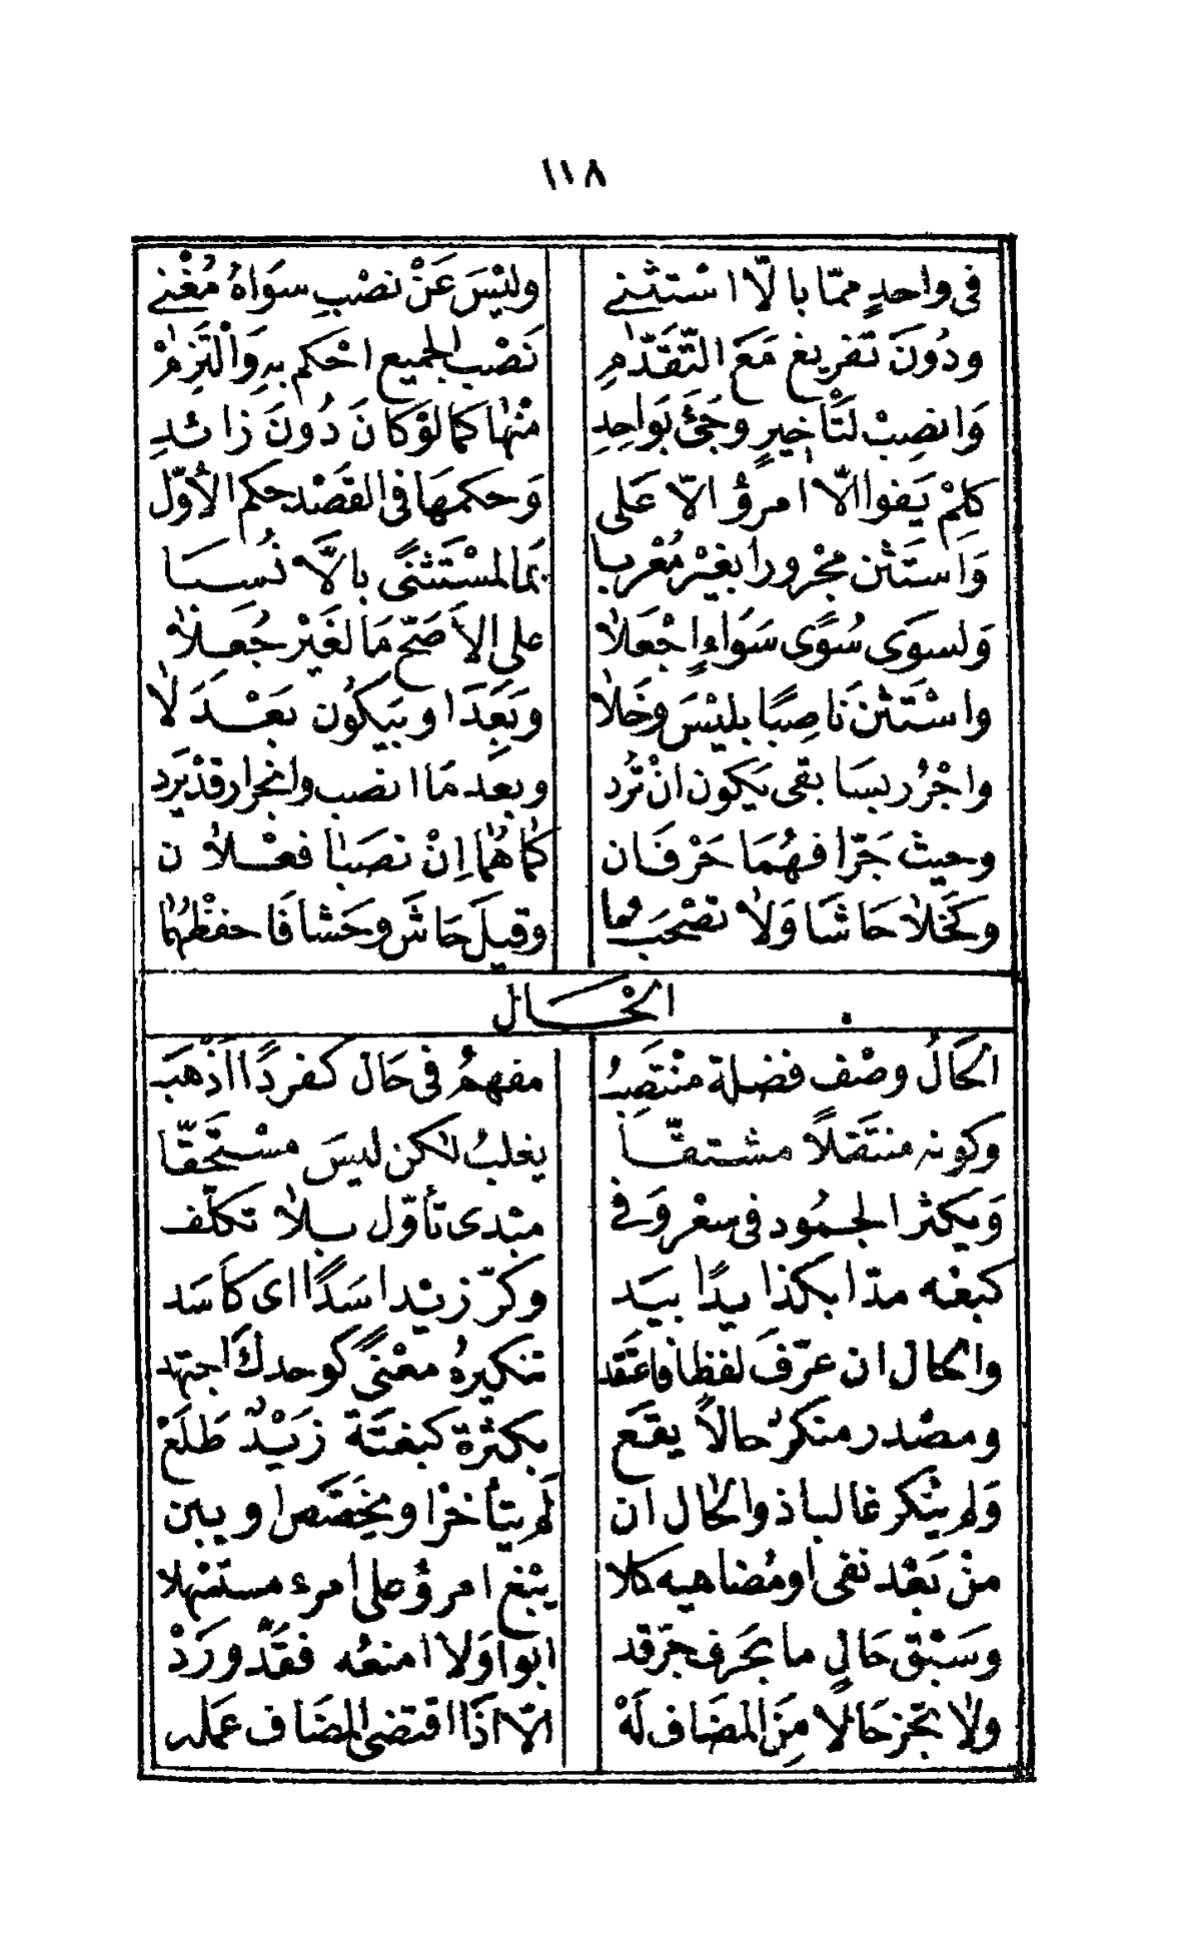 ١١٨
فى واحدٍ ممّا بالّا استثنى وليْسَ عَنْ نصْبِ سوَاهُ مُغْنى
ودُونَ تفريغ مَعَ التّقدّمِ نَصْبَ الجميع احْكم به وَالْتَزِمْ
وَانصِبْ لتَأخيرٍ وجَئ بوَاحدِ منْهاكما لوْ كانَ دُونَ زائدِ
كلمْ يَفوا الّا امرؤ الّا عَلى وَحكمهَا فى القصْد حكم الأوّل
وَاستَثن مجْرورا بغيْر مُعْربا بمَا لمسْتَثنًى بالّا نُسبَا
وَلسوَى سُوًى سَوَاءٍ اجْعَلا على الأصَحّ مَا لغَيْر جُعَلا
واسْتَثْن نَاصِبًا بليْسَ وخَلا وبَعَدَا وبيَكُون بَعْدَ لَا
واجْرُر بسَابقى يَكون انْ تُرد وبعد مَا انصب وانجرار قدْ يَرد
وحيث جَرّا فهُمَا حَرْفَان كمَا هُمَا اِنْ نصَبَا فعْلان
وكخَلا حَاشَا وَلا تصْحَب مَا وقيلَ حَاشَ وحَشا فَاحفظْهُمَا
الحَال
الحَالُ وصْف فضلة منْتَصِبُ مفهمُ فى حَال كفردًا اَذْهَبُ
وكونه منتَقلاً مشتقّا يغلبُ لكن ليسَ مسْتَحَقّا
وَيكثر الجمُود فى سعْر وَفى مبْدى تأوّل بلا تكلّف
كبعْه مدّا بكذا يدًا بيَد وكرّ زيْد اسَدًا اى كأسَد
والحال ان عرّفَ لفظا فاعتَقد تنكيرهُ معْنىً كوحدكَ اجتهد
ومصْدر منكرٌ حالاً يقَع بكثرة كبغتَة زَيْدٌ طَلَعْ
وَلم ينْكر غالبا ذوالحَال ان لم يتأخرْ او يخَصَّص او يبن
منْ بَعْد نفى او مُضاهيه كلا يبْغ امرؤ على امرء مستسْهلا
وَسَبْق حَالٍ ما بحَرف جرّ قد ابوا وَلا امنعُه فقَدْ ورَدْ
ولا تجز حَالًا مِنَ المضَاف لَهْ الّا اذَا اقتضى المضَاف عَمله